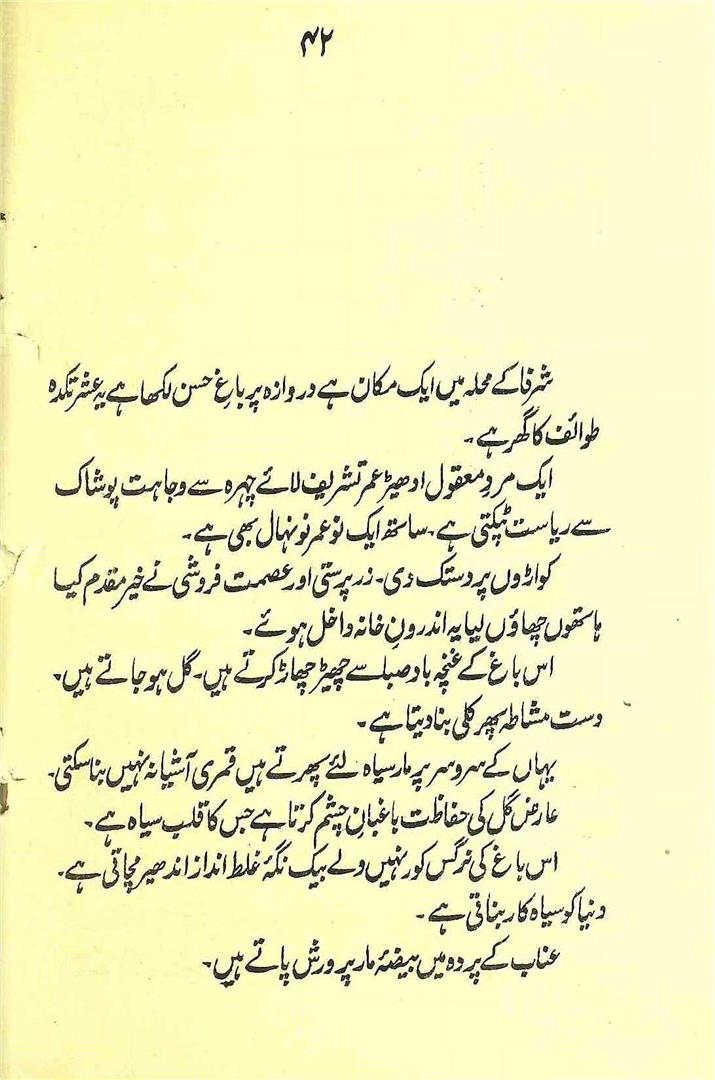 ۴۲
شرفا کے محلہ میں ایک مکان ہے دروازہ پر باغِ حسن لکھا ہے یہ عشرتکدہ
طوائف کا گھر ہے۔
ایک مردِ معقول ادھیڑ عمر تشریف لائے چہرہ سے وجاہت پوشاک
سے ریاست ٹپکتی ہے۔ ساتھ ایک نو عمر نو نہال بھی ہے۔
کواڑوں پر دستک دی۔ زر پرستی اور عصمت فروشی نے خیر مقدم کیا
ہاتھوں چھاؤں لیا یہ اندرونِ خانہ داخل ہوئے۔
اس باغ کے غنچہ بادِ صبا سے چھیڑ چھاڑ کرتے ہیں۔ گل ہو جاتے ہیں۔
دست مشاطہ پھر کلی بنا دیتا ہے۔
یہاں کے سرو سر پر مارِ سیاہ لئے پھرتے ہیں قمری آشیانہ نہیں بنا سکتی۔
عارضِ گل کی حفاظت باغبانِ چشم کرتا ہے جس کا قلب سیاہ ہے۔
اس باغ کی نرگس کور نہیں ولے بیک نگہٗ غلط انداز اندھیر مچاتی ہے۔
دنیا کو سیاہ کار بناتی ہے۔
عناب کے پردہ میں بیضۂ مار پرورش پاتے ہیں۔